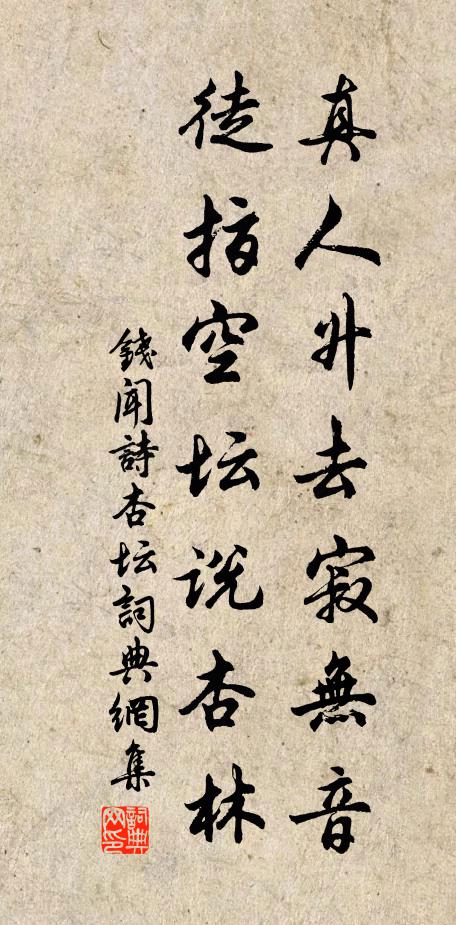 真人升去寂無音
徒指空坛説杏林
錢聞詩杏坛詞典網集
詞典
网印